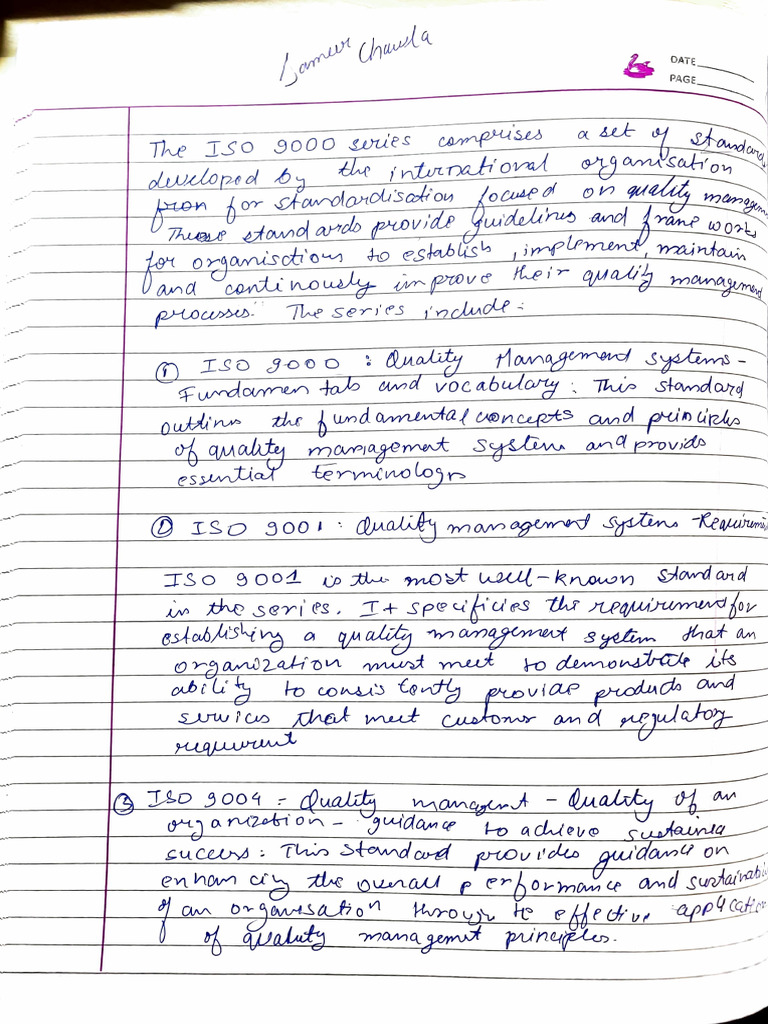 Chawla
DATE
PAGE
The ISO 9000 series comprises a set of standards
developed by the international organisation
fron for standardisation focused on quality managem
These standards provide guidelines and frame works
for organisations to establish, implement, maintain
and continously improve their quality management
processes. The series include:
① ISO 9000 : Quality Management systems -
Fundamentals and vocabulary : This standard
outlines the fundamental concepts and principles
of quality management systems and provids
essential terminology
② ISO 9001 : Quality management systems - Requirem
ISO 9001 is the most well-known standard
in the series. It specificies the requirement for
establishing a quality management system that an
organization must meet to demonstrate its
ability to consistently provide products and
services that meet customer and regulatory
requirement
③ ISO 9004 = Quality managemt - Quality of an
organization - guidance to achieve sustained
success : This standard provides guidance on
enhancing the overall performance and sustainabi
of an organisation through te effective application
of quality managemt principles.